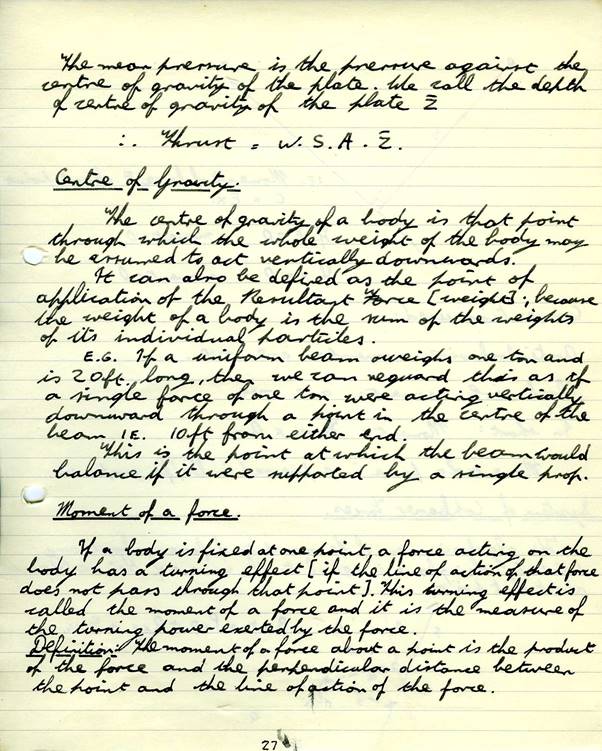 The mean pressure is the pressure against the
centre of gravity of the plate. We call the depth
of centre of gravity of the plate Z̄
∴ Thrust = W.S.A.Z̄.
Centre of Gravity.
The centre of gravity of a body is that point
through which the whole weight of the body may
be assumed to act vertically downwards.
It can also be defined as the point of
application of the Resultant Force [weight], because
the weight of a body is the sum of the weights
of its individual particles.
E.G. If a uniform beam weighs one ton and
is 20ft. long, then we can reguard this as if
a single force of one ton, were acting vertically
downward through a point in the centre of the
beam I.E. 10ft from either end.
This is the point at which the beam would
balance if it were supported by a single prop.
Moment of a force.
If a body is fixed at one point, a force acting on the
body has a turning effect [if the line of action of that force
does not pass through that point]. This turning effect is
called the moment of a force and it is the measure of
the turning power exerted by the force.
Definition: The moment of a force about a point is the product
of the force and the perpendicular distance between
the point and the line of action of the force.
27